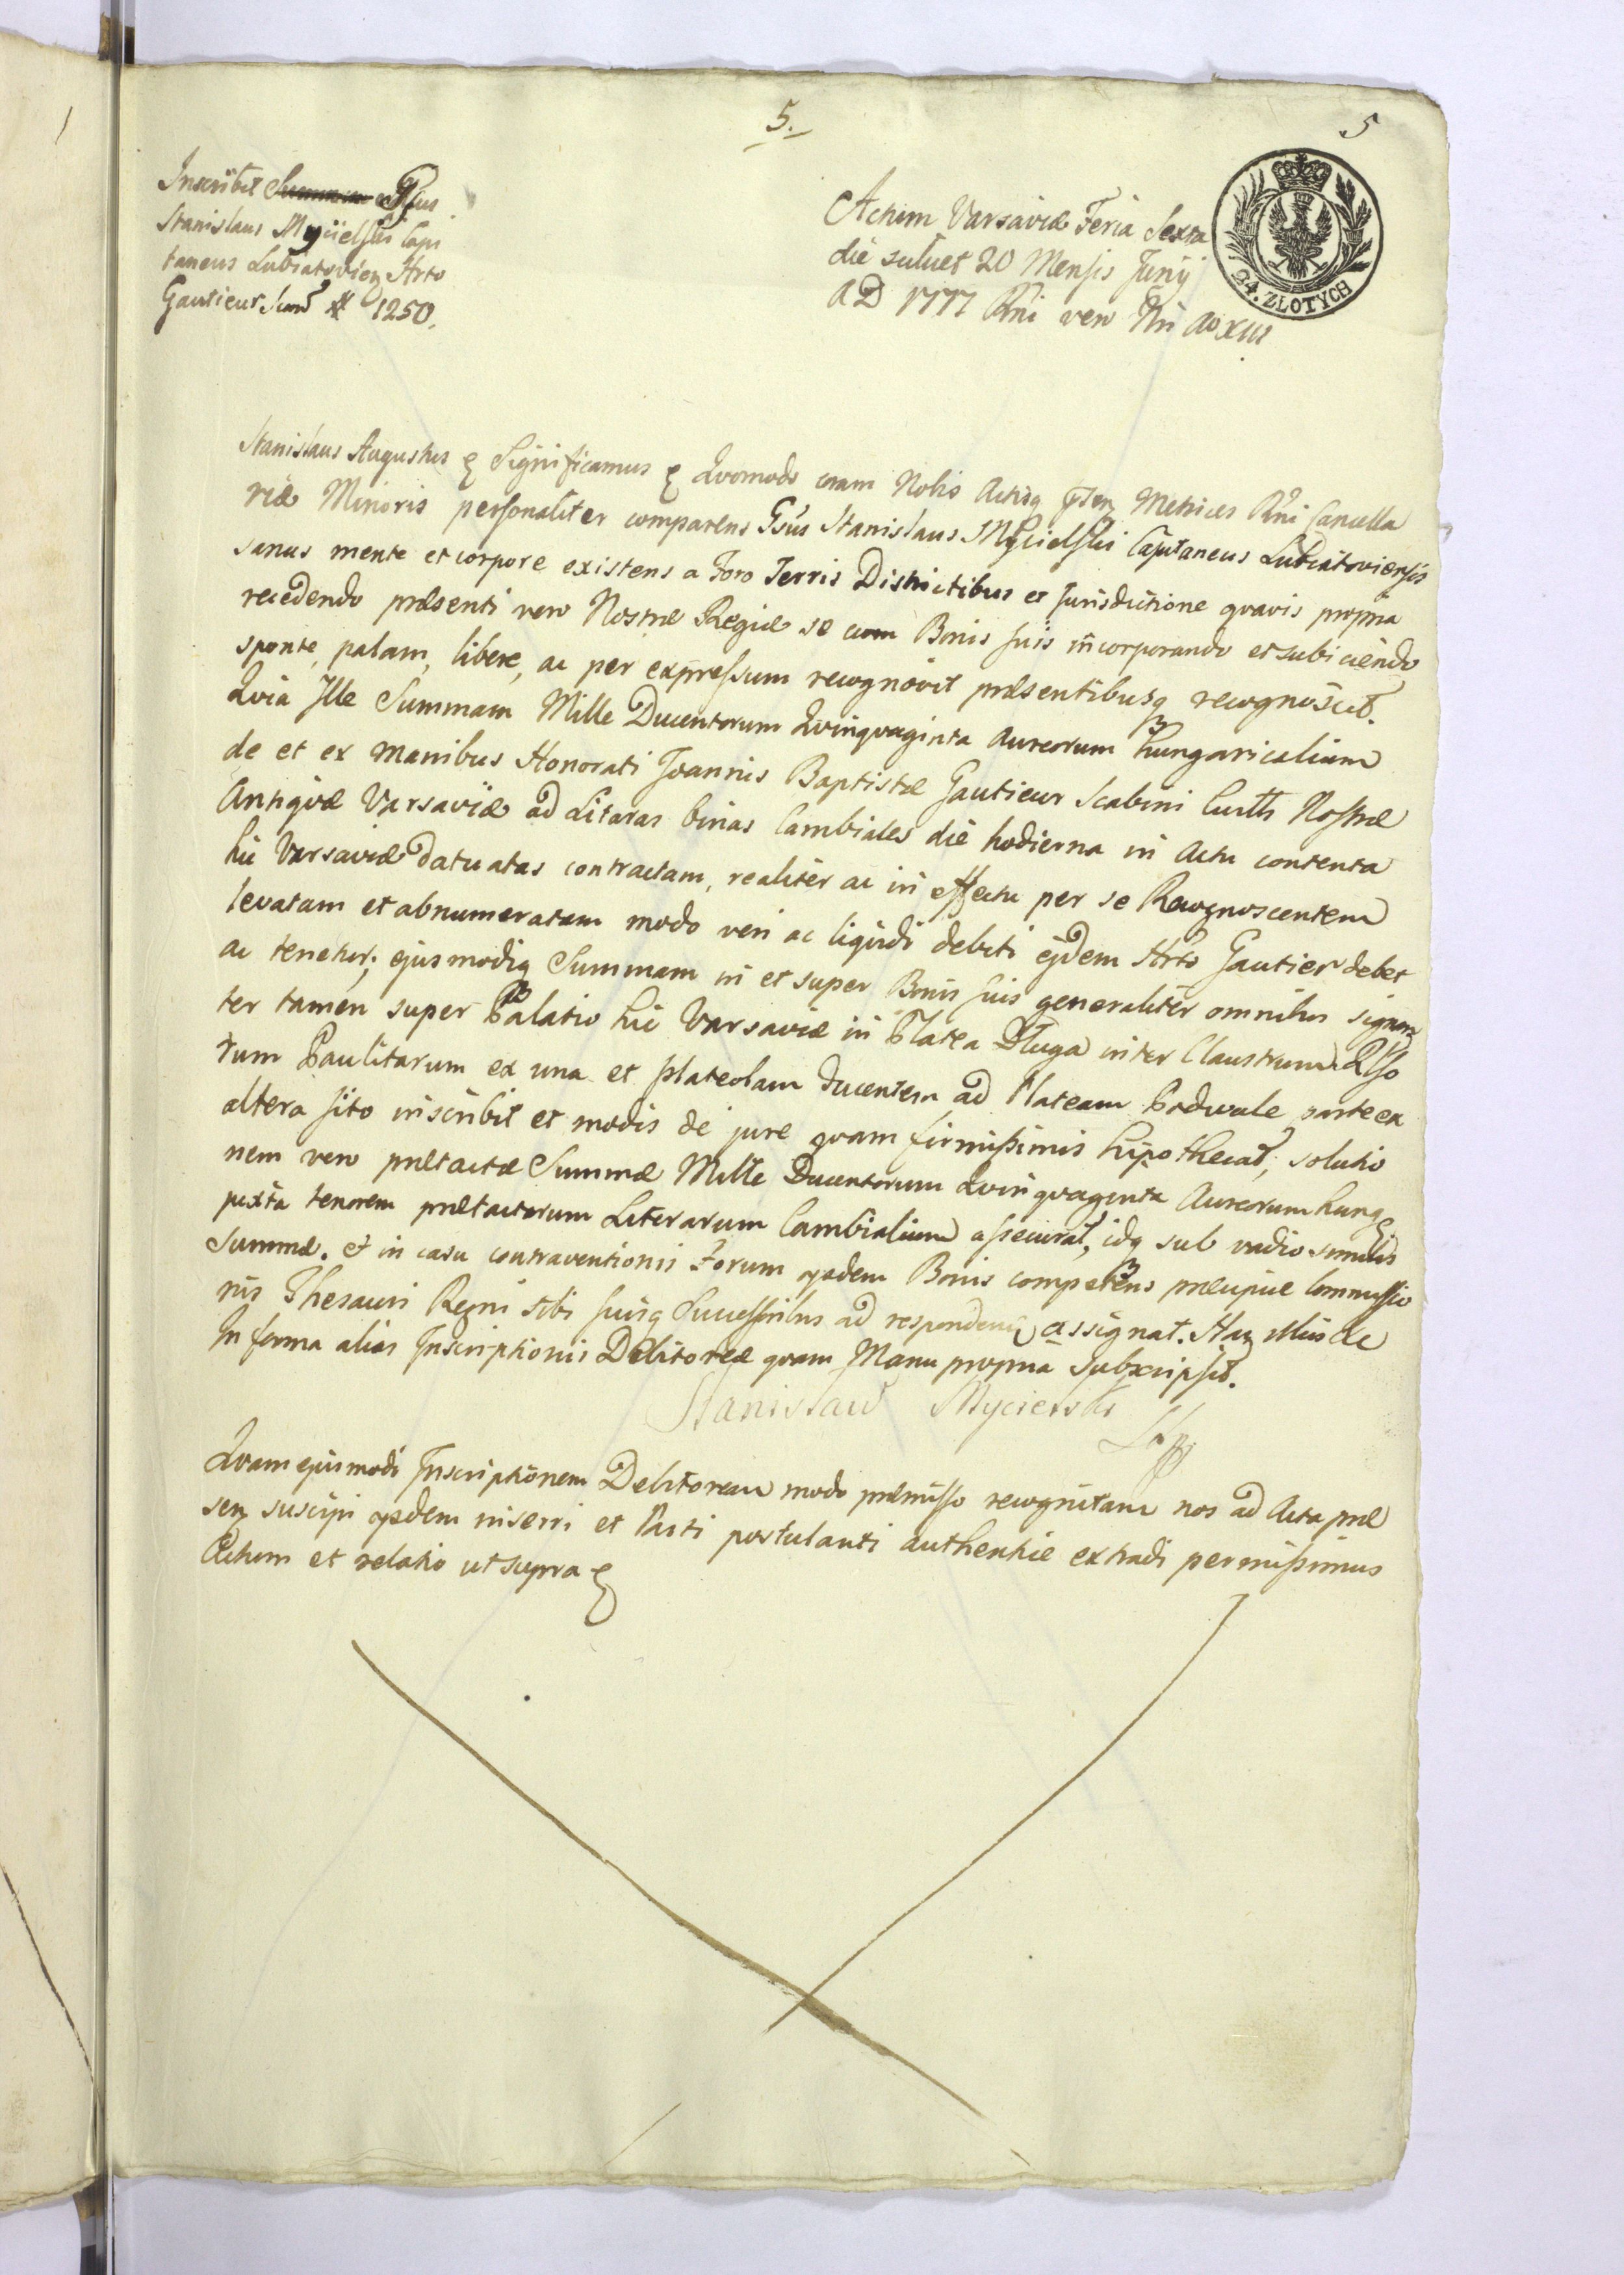 5.
5
Inscribit Gsus
Stanislaus Mycielski Capi
taneus Lubiatovien Hrto
Gautieur Sum # 1250.
Actum Varsaviæ Feria Sexta
die scilicet 20 Mensis Junij
AD 1777 Rni vero Nri Ao XIII
24. ZLOTYCH
Stanislaus Augustus & Significamus & Qvomodo coram Nobis Actisq pnsen Metrices Rni Cancella
riæ Minoris personaliter comparens Gsus Stanislaus Mycielski Capitaneus Lubiatoviensis
sanus mente et corpore existens a Foro Terris Districtibus et Jurisdictione qvavis propria
recedendo præsenti vero Nostræ Regiæ se cum Bonis suis incorporando et subiiciendo
sponte, palam, libere, ac per expressum recognovit præsentibusq recognoscit.
Qvia Ille Summam Mille Ducentorum Qvinqvaginta Aureorum Hungaricalium
de et ex manibus Honorati Joannis Baptistæ Gautieur Scabini Civitts Nostræ
Antiqvæ Varsaviæ ad Literas binas Cambiales die hodierna in Actu contenta
hic Varsaviæ datu atas contractam, realiter ac in effectu per se Recognoscentem
levatam et abnumeratam modo veri ac liqvidi debiti ejdem Hrto Gautier debet
ac tenetur; ejusmodiq Summam in et super Bonis suis generaliter omnibus signan
ter tamen super Palatio hic Varsaviæ in Platea Długa inter Claustrum Rlso
rum Paulitarum ex una et plateolam ducentem ad Plateam Podwale parte ex
altera sito inscribit et modis de jure qvam firmissimis hipothecat; solutio
nem vero prætactæ Summæ Mille Ducentorum Qvinqvaginta Aureorum Hung
juxta tenorem prætactarum Literarum Cambialium assecurat, idq sub vadio similis
Summæ. Et in casu contraventionis Forum ejsdem Bonis competens præcipue Commissio
nis Thesauri Regni sibi suisq Successoribus ad responden assignat. Hac illius de
In forma alias Inscriptionis Debitoreæ qvam Manu propria subscripsit.
Stanisław Mycielski
Quam ejusmodi Inscriptionem Debitoream modo præmisso recognitam nos ad Acta præ
sen suscipi ejsdem inseri et Parti postulanti authentice extradi permissimus
Actum et relatio ut supra &